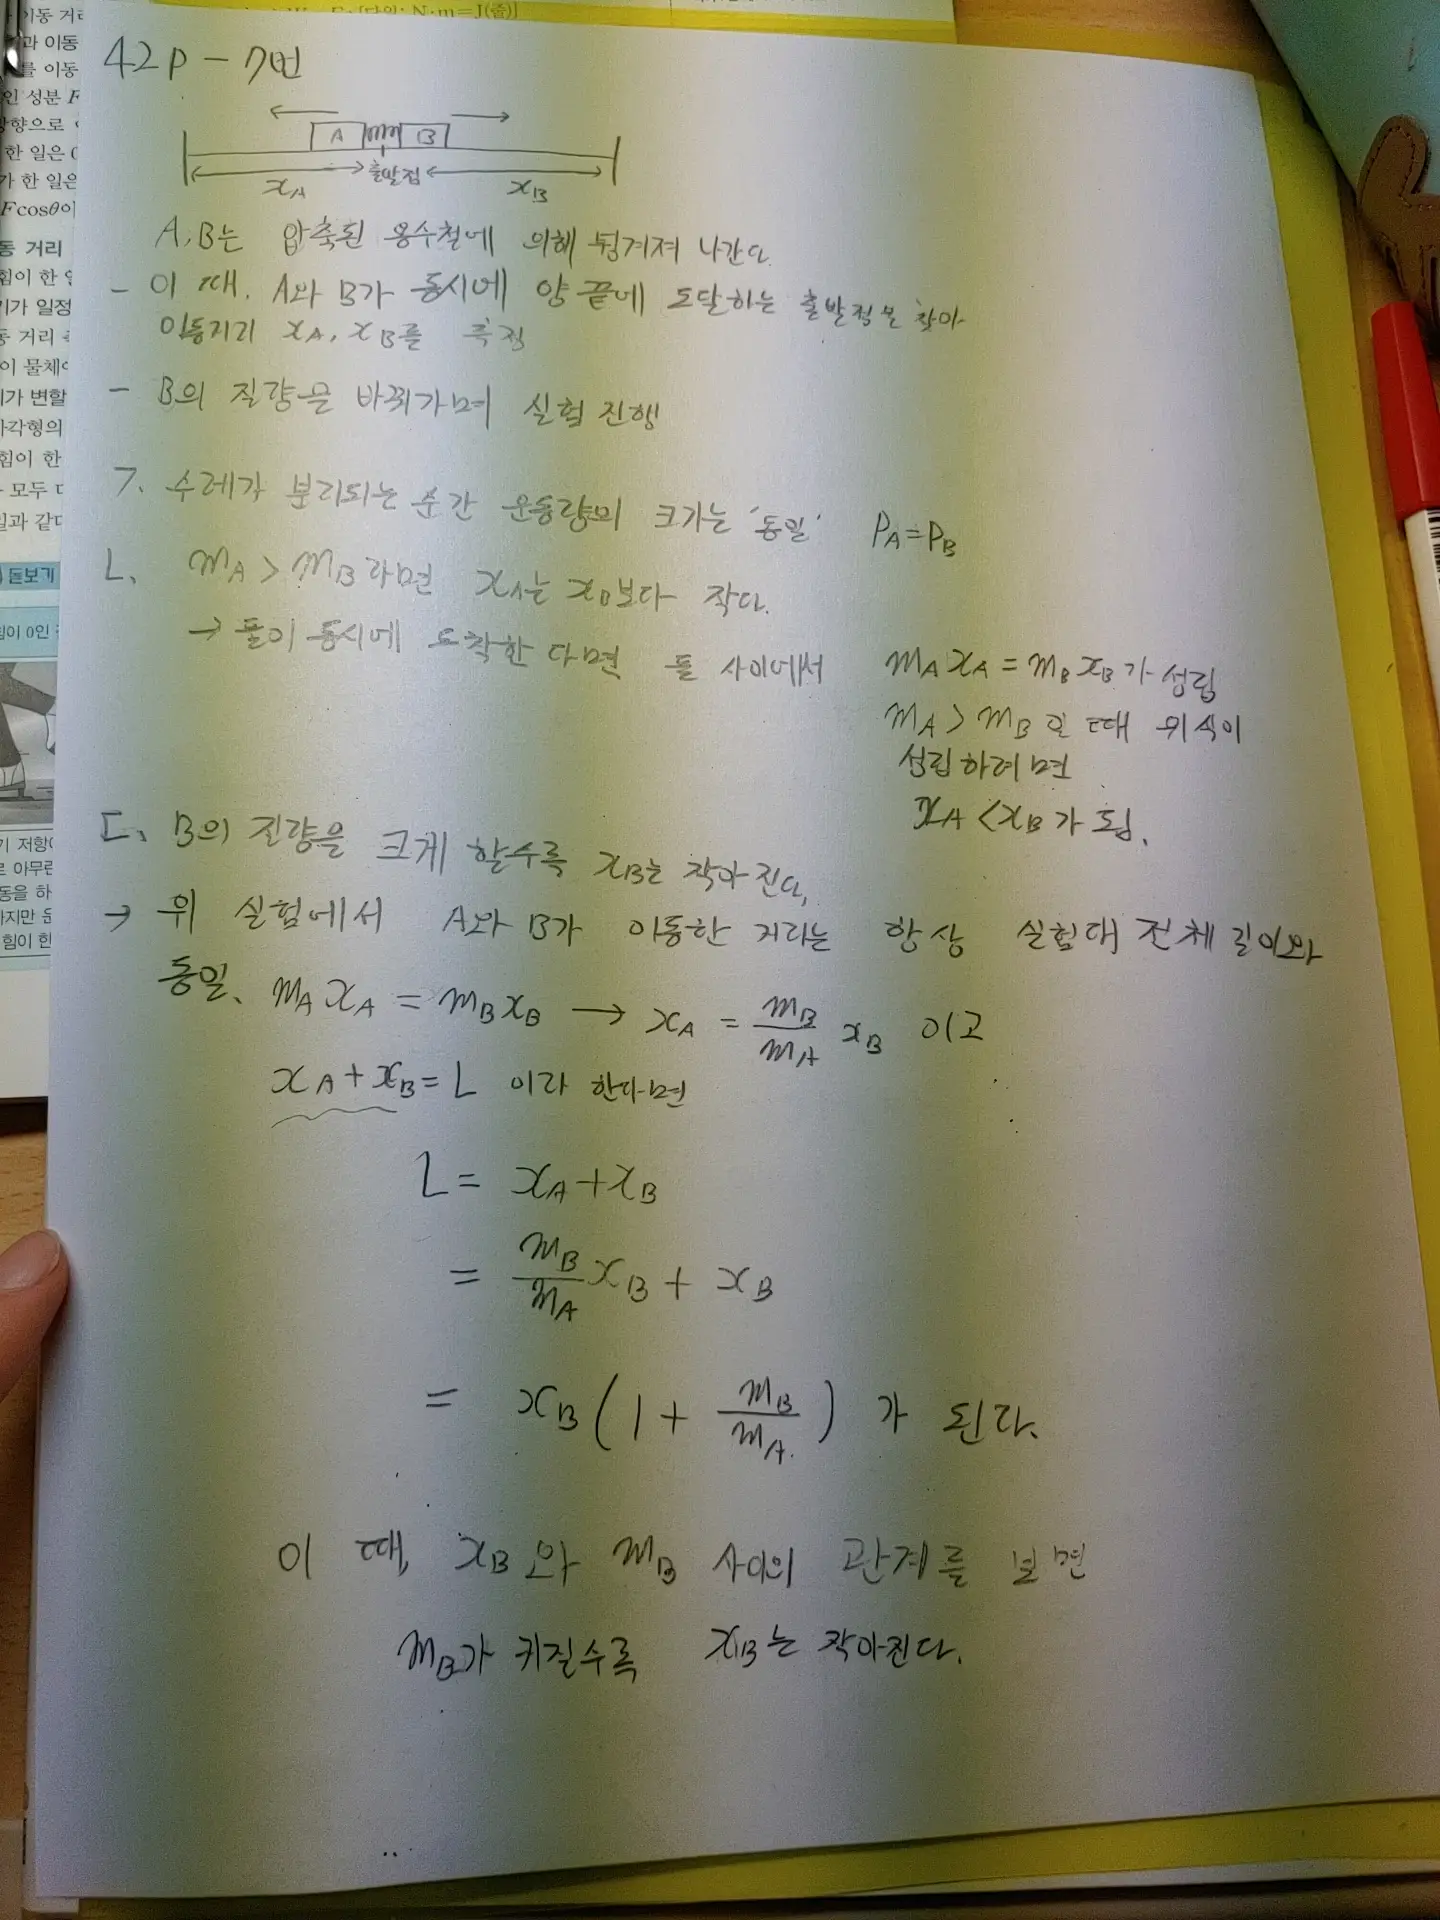 [단위: N·m=J(줄)]
42p - 7번
A B
xA 출발점 xB
A, B는 압축된 용수철에 의해 튕겨져 나간다.
- 이 때, A와 B가 동시에 양 끝에 도달하는 출발점을 찾아
이동거리 xA, xB를 측정
- B의 질량을 바꿔가며 실험 진행
ㄱ. 수레가 분리되는 순간 운동량의 크기는 '동일' PA=PB
ㄴ. mA > mB라면 xA는 xB보다 작다.
→ 둘이 동시에 도착한다면 둘 사이에서 mA xA = mB xB가 성립
mA > mB일 때 위 식이
성립하려면
xA < xB가 됨.
ㄷ. B의 질량을 크게 할수록 xB는 작아진다.
→ 위 실험에서 A와 B가 이동한 거리는 항상 실험대 전체 길이와
동일. mA xA = mB xB → xA = mB/mA xB 이고
xA + xB = L 이라 한다면
L = xA + xB
= mB/mA xB + xB
= xB (1 + mB/mA) 가 된다.
이 때, xB와 mB 사이의 관계를 보면
mB가 커질수록 xB는 작아진다.
이동 거리
과 이동
를 이동
인 성분 F
방향으로
한 일은 0
가 한 일은
Fcosθ이
동 거리
힘이 한 일
기가 일정
동 거리
이 물체
기가 변할
사각형의
힘이 한
모두 다
일과 같다
돋보기
힘이 0인
기 저항
로 아무런
동을 하
하지만 운
힘이 한